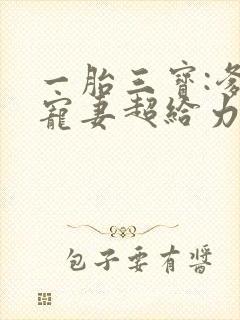 一胎三寶:
寵妻超給力
包子要有醬